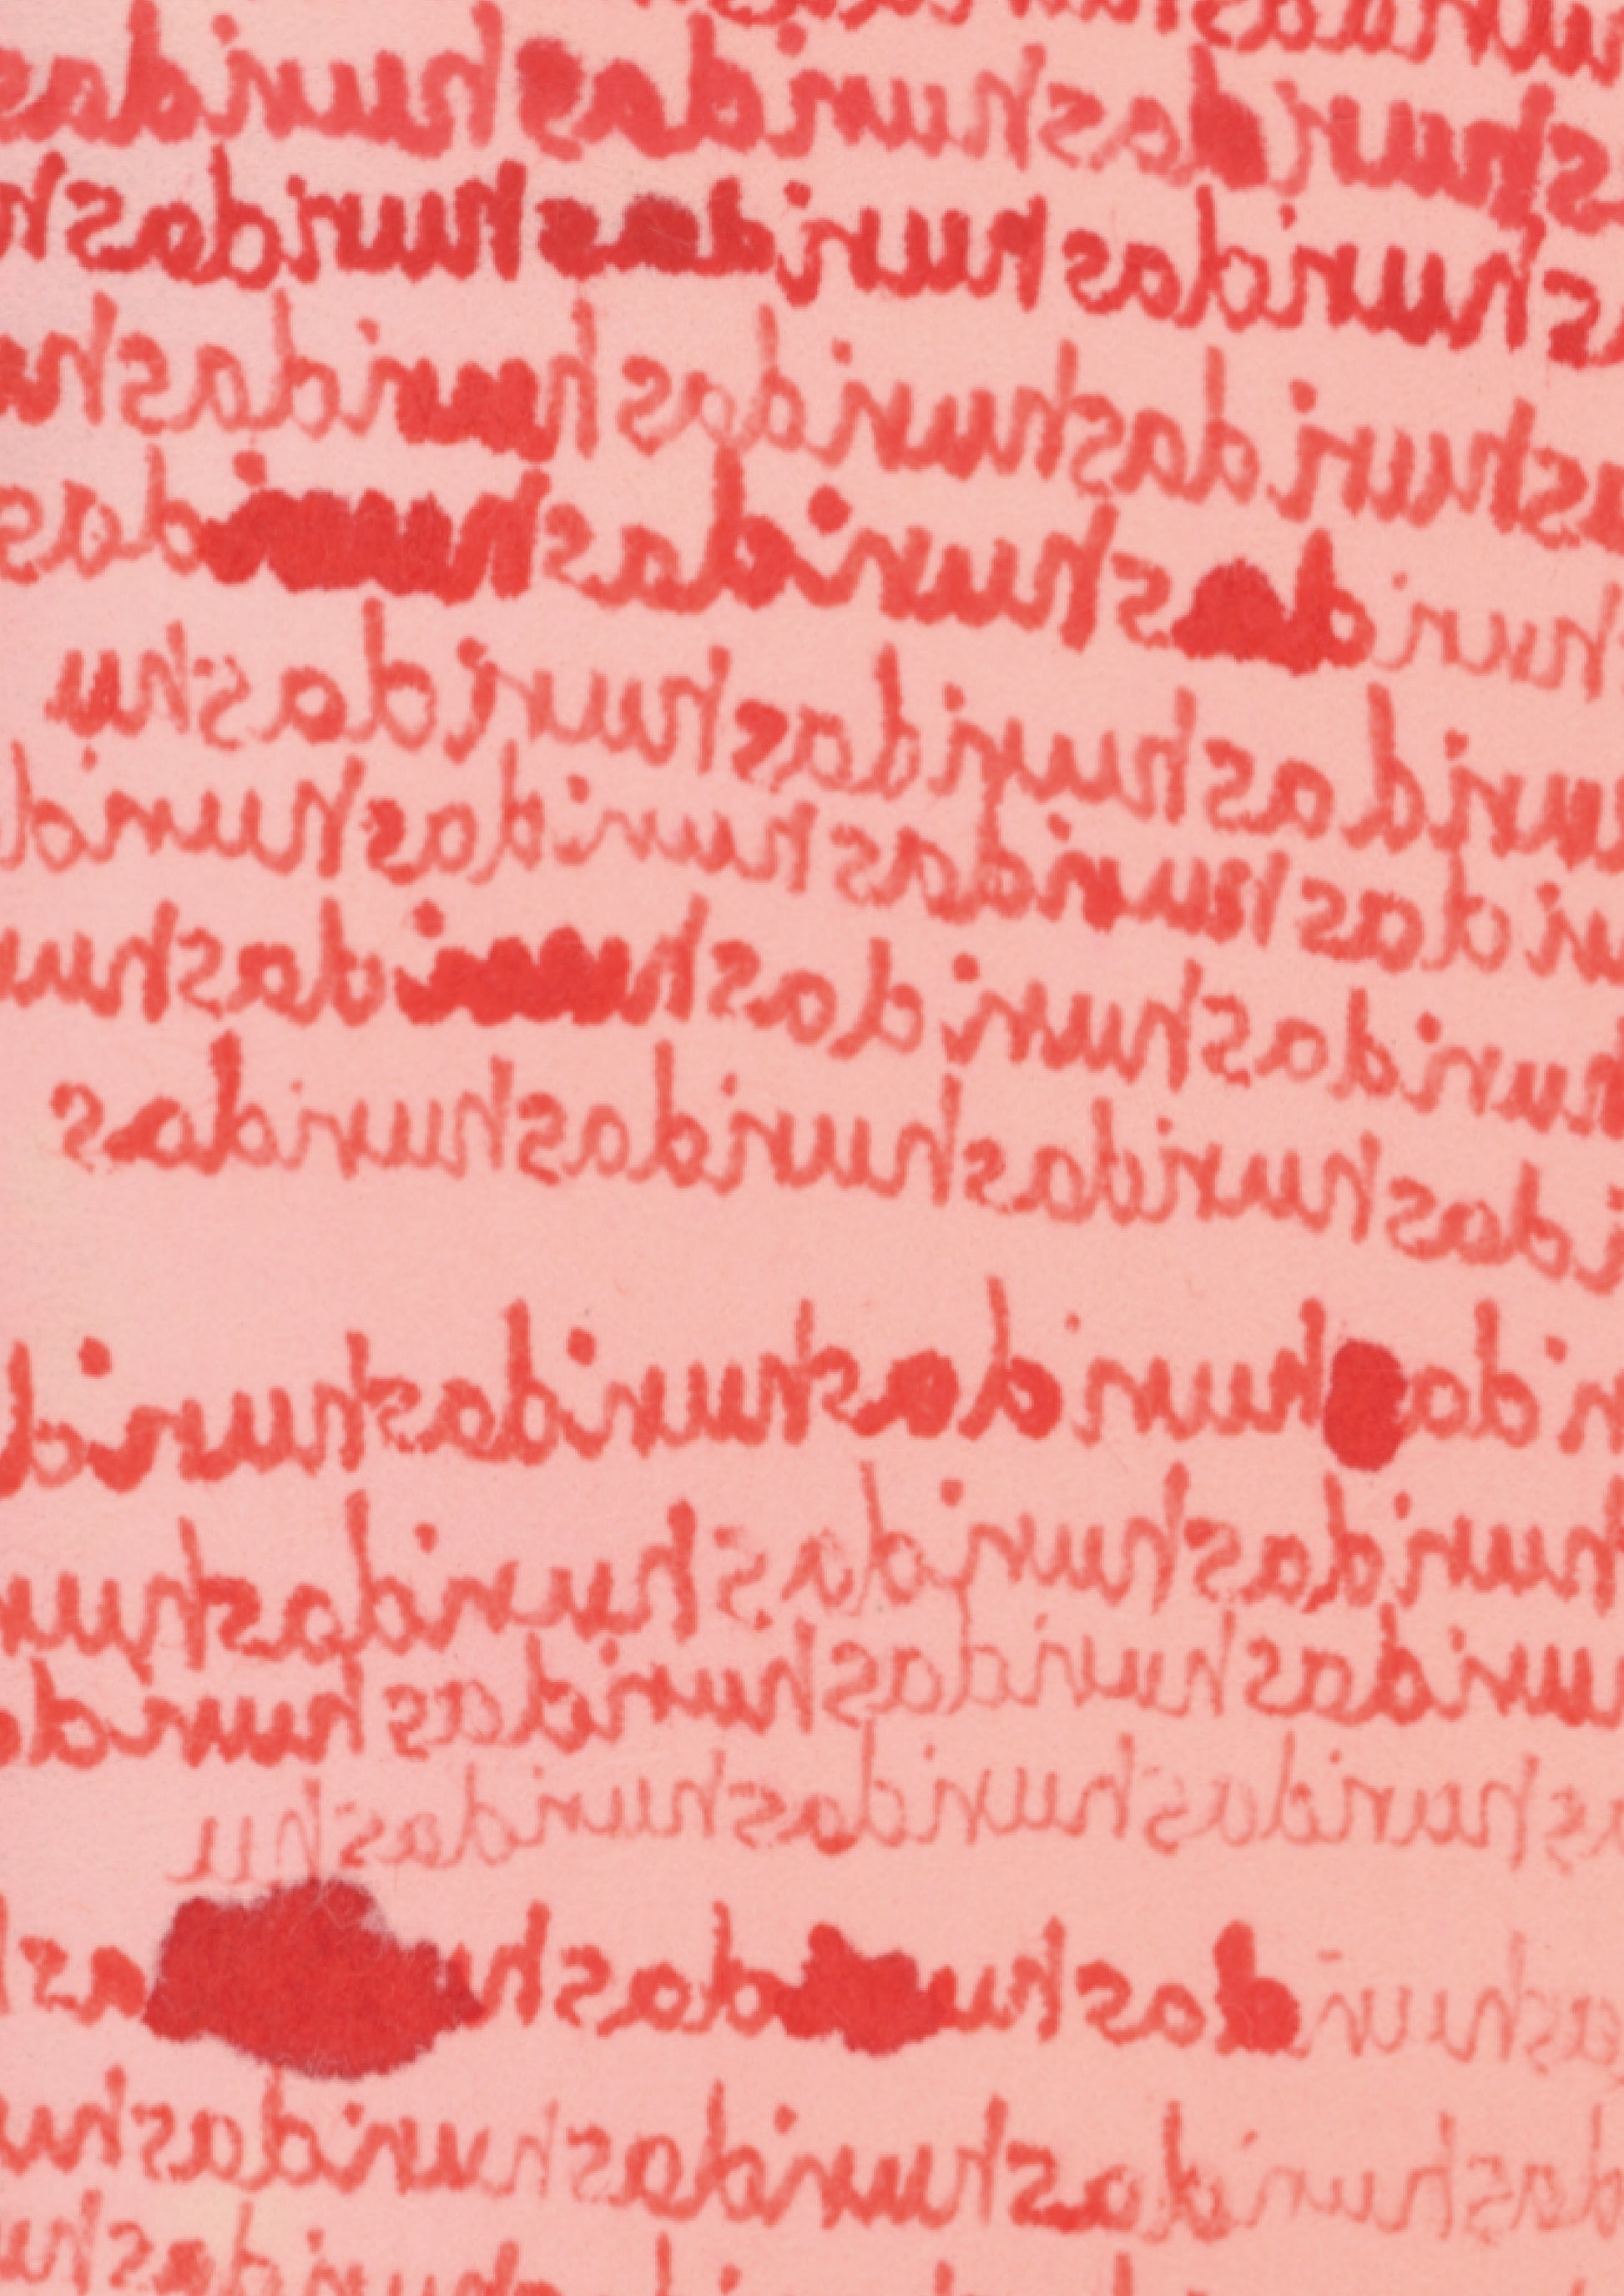 shuridashuridashuridas
shuridashuridashuridash
ashuridashuridashuridashu
huridashuridashuridas
uridashuridashuridashu
ridashuridashuridashurid
huridashuridashuridashu
idashuridashuridashuridas
ridashuridashuridashurid
huridashuridashuridashur
uridashuridashuridashurida
ashuridashuridashuridashu
ashuridashu das hu as
dashuridashuridashuridashu